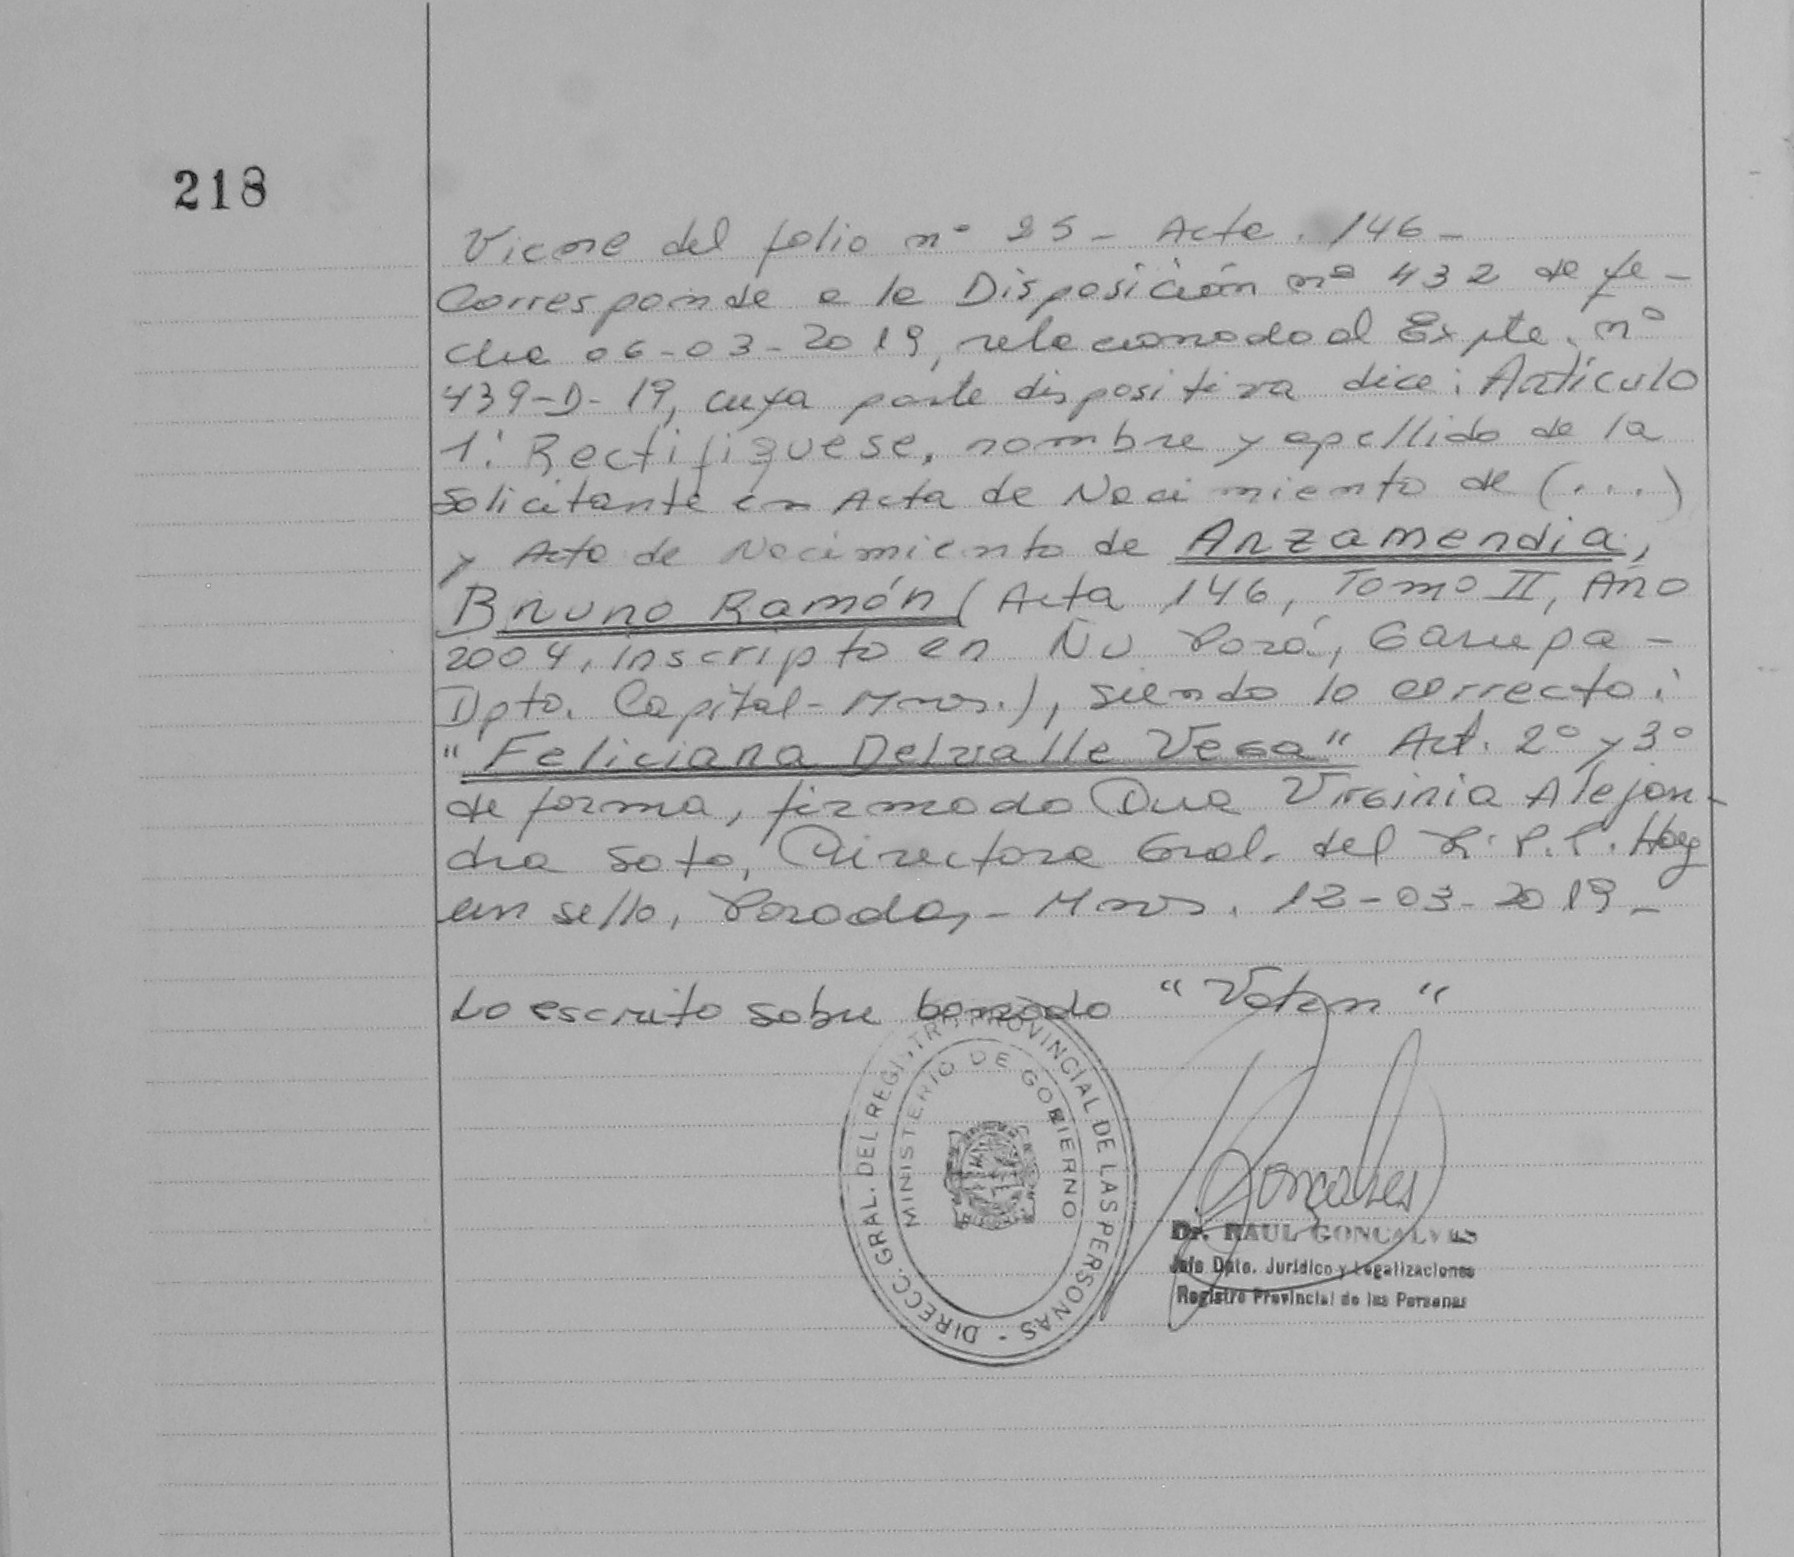 218
Viene del folio nº 25 - Acta. 146 -
Corresponde a la Disposición nº 432 de fe -
cha 06-03-2019, relacionado al Expte. nº
439-D-19, cuya parte dispositiva dice: Artículo
1: Rectifiquese, nombre y apellido de la
solicitante en Acta de Nacimiento de (...)
y Acta de Nacimiento de Arzamendia,
Bruno Ramón (Acta 146, Tomo II, Año
2004, inscripto en Ñu Porá, Garupa -
Dpto. Capital - Mnes.), siendo lo correcto:
"Feliciana Delvalle Vega" Art. 2º y 3º
de forma, firmado Dra Virginia Alejan -
dra Soto, Directora Gral. del R.P.P. Hay
un sello, Posadas - Mnes. 12-03-2019 -
Lo escrito sobre borrado "Valen"
DIRECC. GRAL. DEL REGISTRO PROVINCIAL DE LAS PERSONAS -
MINISTERIO DE GOBIERNO
Gonçalves
Dr. RAUL GONCALVES
Jefe Dpto. Jurídico y Legalizaciones
Registro Provincial de las Personas